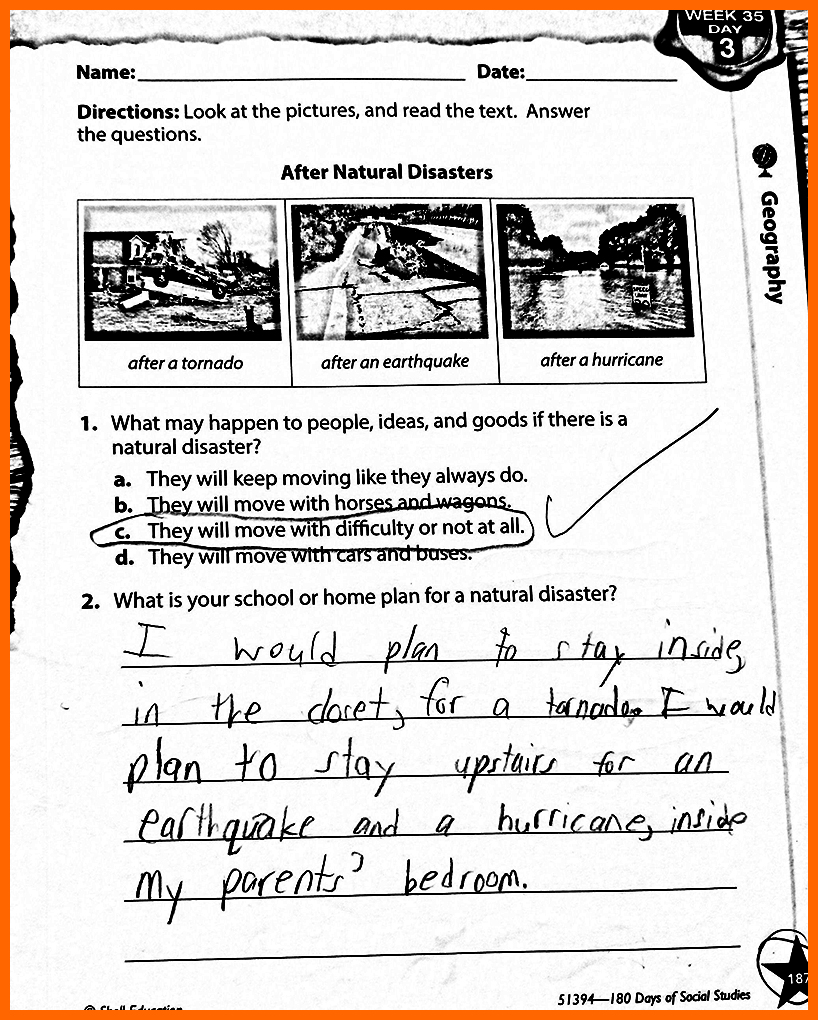 WEEK 35
DAY
3
Name: Date:
Directions: Look at the pictures, and read the text. Answer
the questions.
After Natural Disasters
Geography
after a tornado
after an earthquake
after a hurricane
1. What may happen to people, ideas, and goods if there is a
natural disaster?
a. They will keep moving like they always do.
b. They will move with horses and wagons.
c. They will move with difficulty or not at all.
d. They will move with cars and buses.
2. What is your school or home plan for a natural disaster?
I would plan to stay inside,
in the closet, for a tornado. I would
plan to stay upstairs for an
earthquake and a hurricane, inside
my parents' bedroom.
187
© Shell Education
51394—180 Days of Social Studies